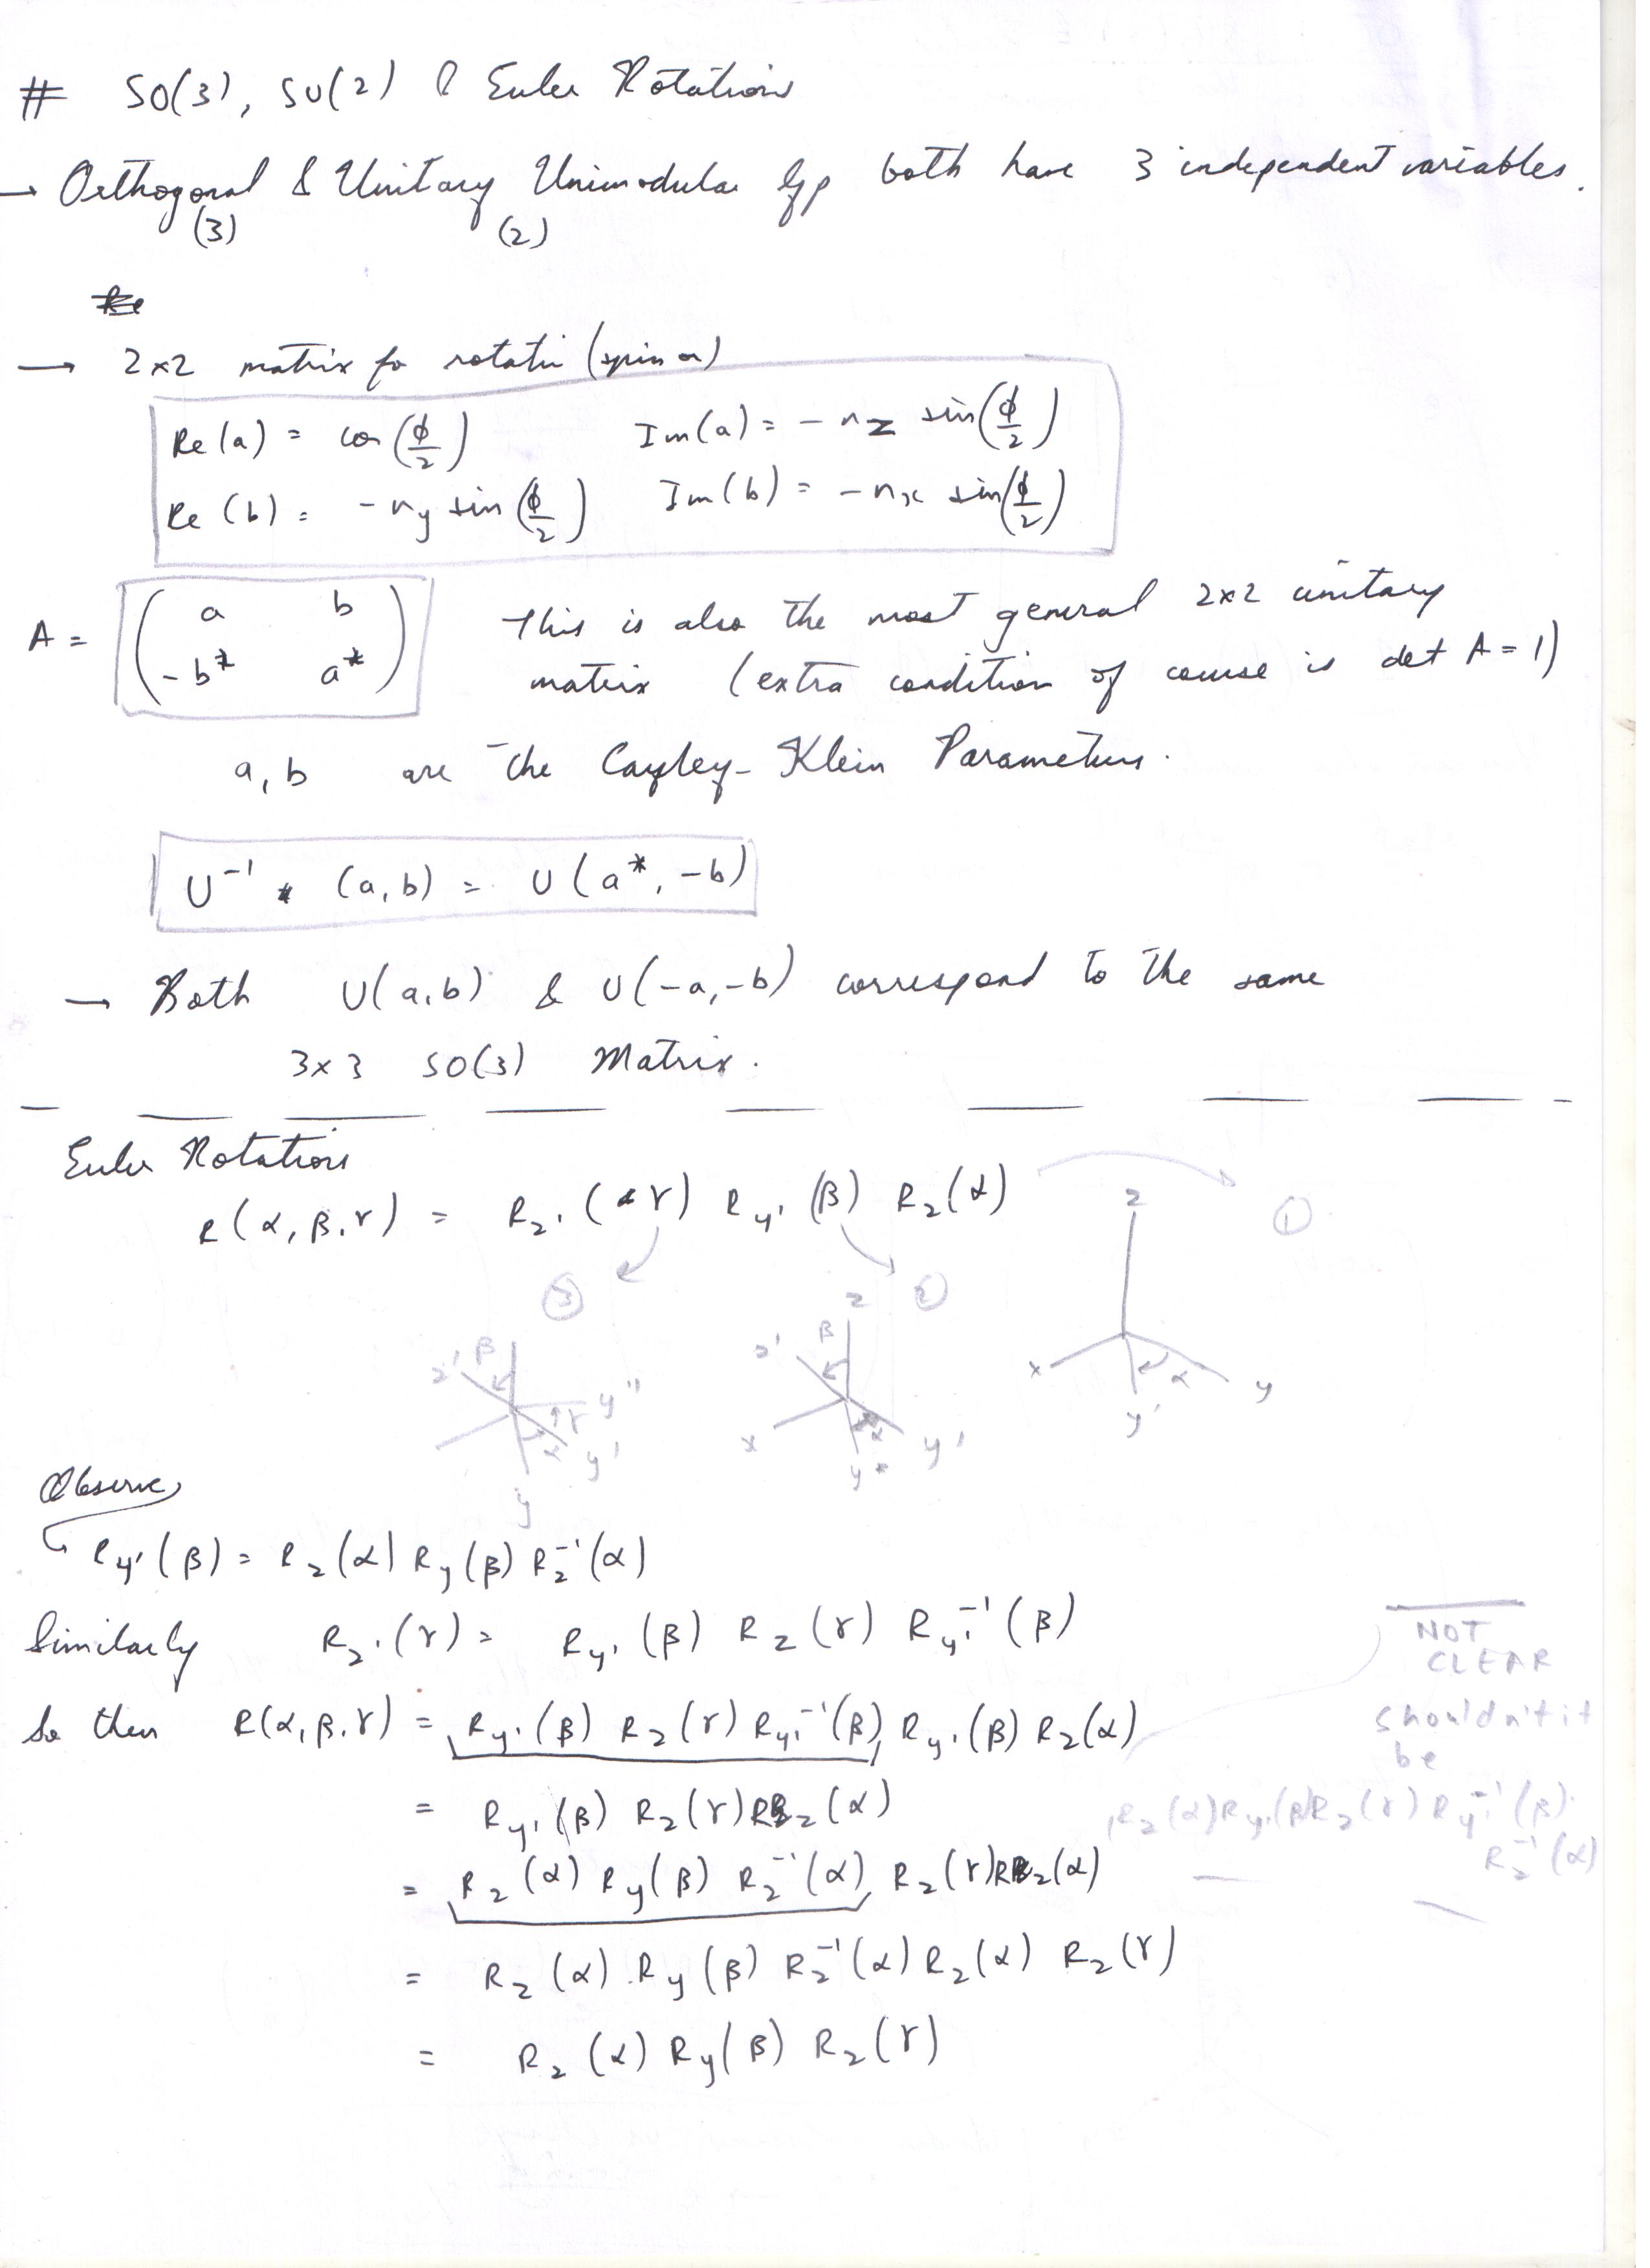 # SO(3), SU(2) & Euler Rotations
→ Orthogonal & Unitary Unimodular Gp both have 3 independent variables.
(3) (2)
→ 2×2 matrix for rotatin (spinor)
Re(a) = cos(ϕ/2) Im(a) = - n_z sin(ϕ/2)
Re(b) = - n_y sin(ϕ/2) Im(b) = - n_x sin(ϕ/2)
A = ( a b ; -b* a* ) This is also the most general 2×2 unitary
matrix (extra condition of course is det A = 1)
a, b are the Cayley-Klein Parameters.
U⁻¹ (a,b) = U(a*, -b)
→ Both U(a,b) & U(-a,-b) correspond to the same
3×3 SO(3) Matrix.
Euler Rotations
R(α, β, γ) = R_z'(γ) R_y'(β) R_z(α)
z ①
x α y
y'
z ②
z' β
x α y'
y
③
z' β
y'' γ
α y'
y
Observe
R_y'(β) = R_z(α) R_y(β) R_z⁻¹(α)
Similarly R_z'(γ) = R_y'(β) R_z(γ) R_y'⁻¹(β)
So then R(α, β, γ) = R_y'(β) R_z(γ) R_y'⁻¹(β) R_y'(β) R_z(α)
= R_y'(β) R_z(γ) R_z(α)
= R_z(α) R_y(β) R_z⁻¹(α) R_z(γ) R_z(α)
= R_z(α) R_y(β) R_z⁻¹(α) R_z(α) R_z(γ)
= R_z(α) R_y(β) R_z(γ)
NOT
CLEAR
shouldn't it
be
R_z(α) R_y'(β) R_z(γ) R_y'⁻¹(β)
R_z⁻¹(α)